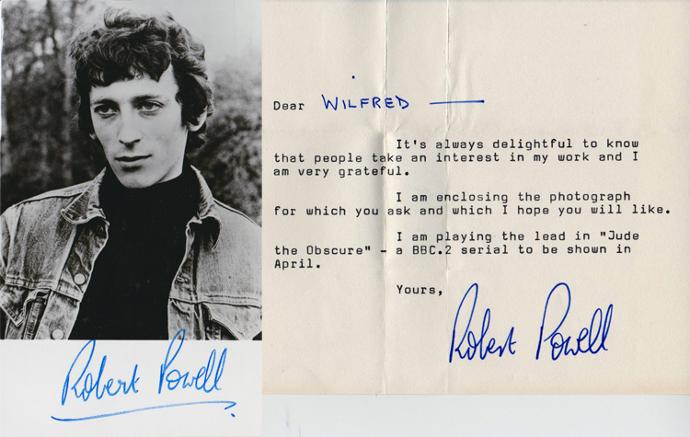 Robert Powell
Dear WILFRED —
It's always delightful to know
that people take an interest in my work and I
am very grateful.
I am enclosing the photograph
for which you ask and which I hope you will like.
I am playing the lead in "Jude
the Obscure" - a BBC.2 serial to be shown in
April.
Yours,
Robert Powell